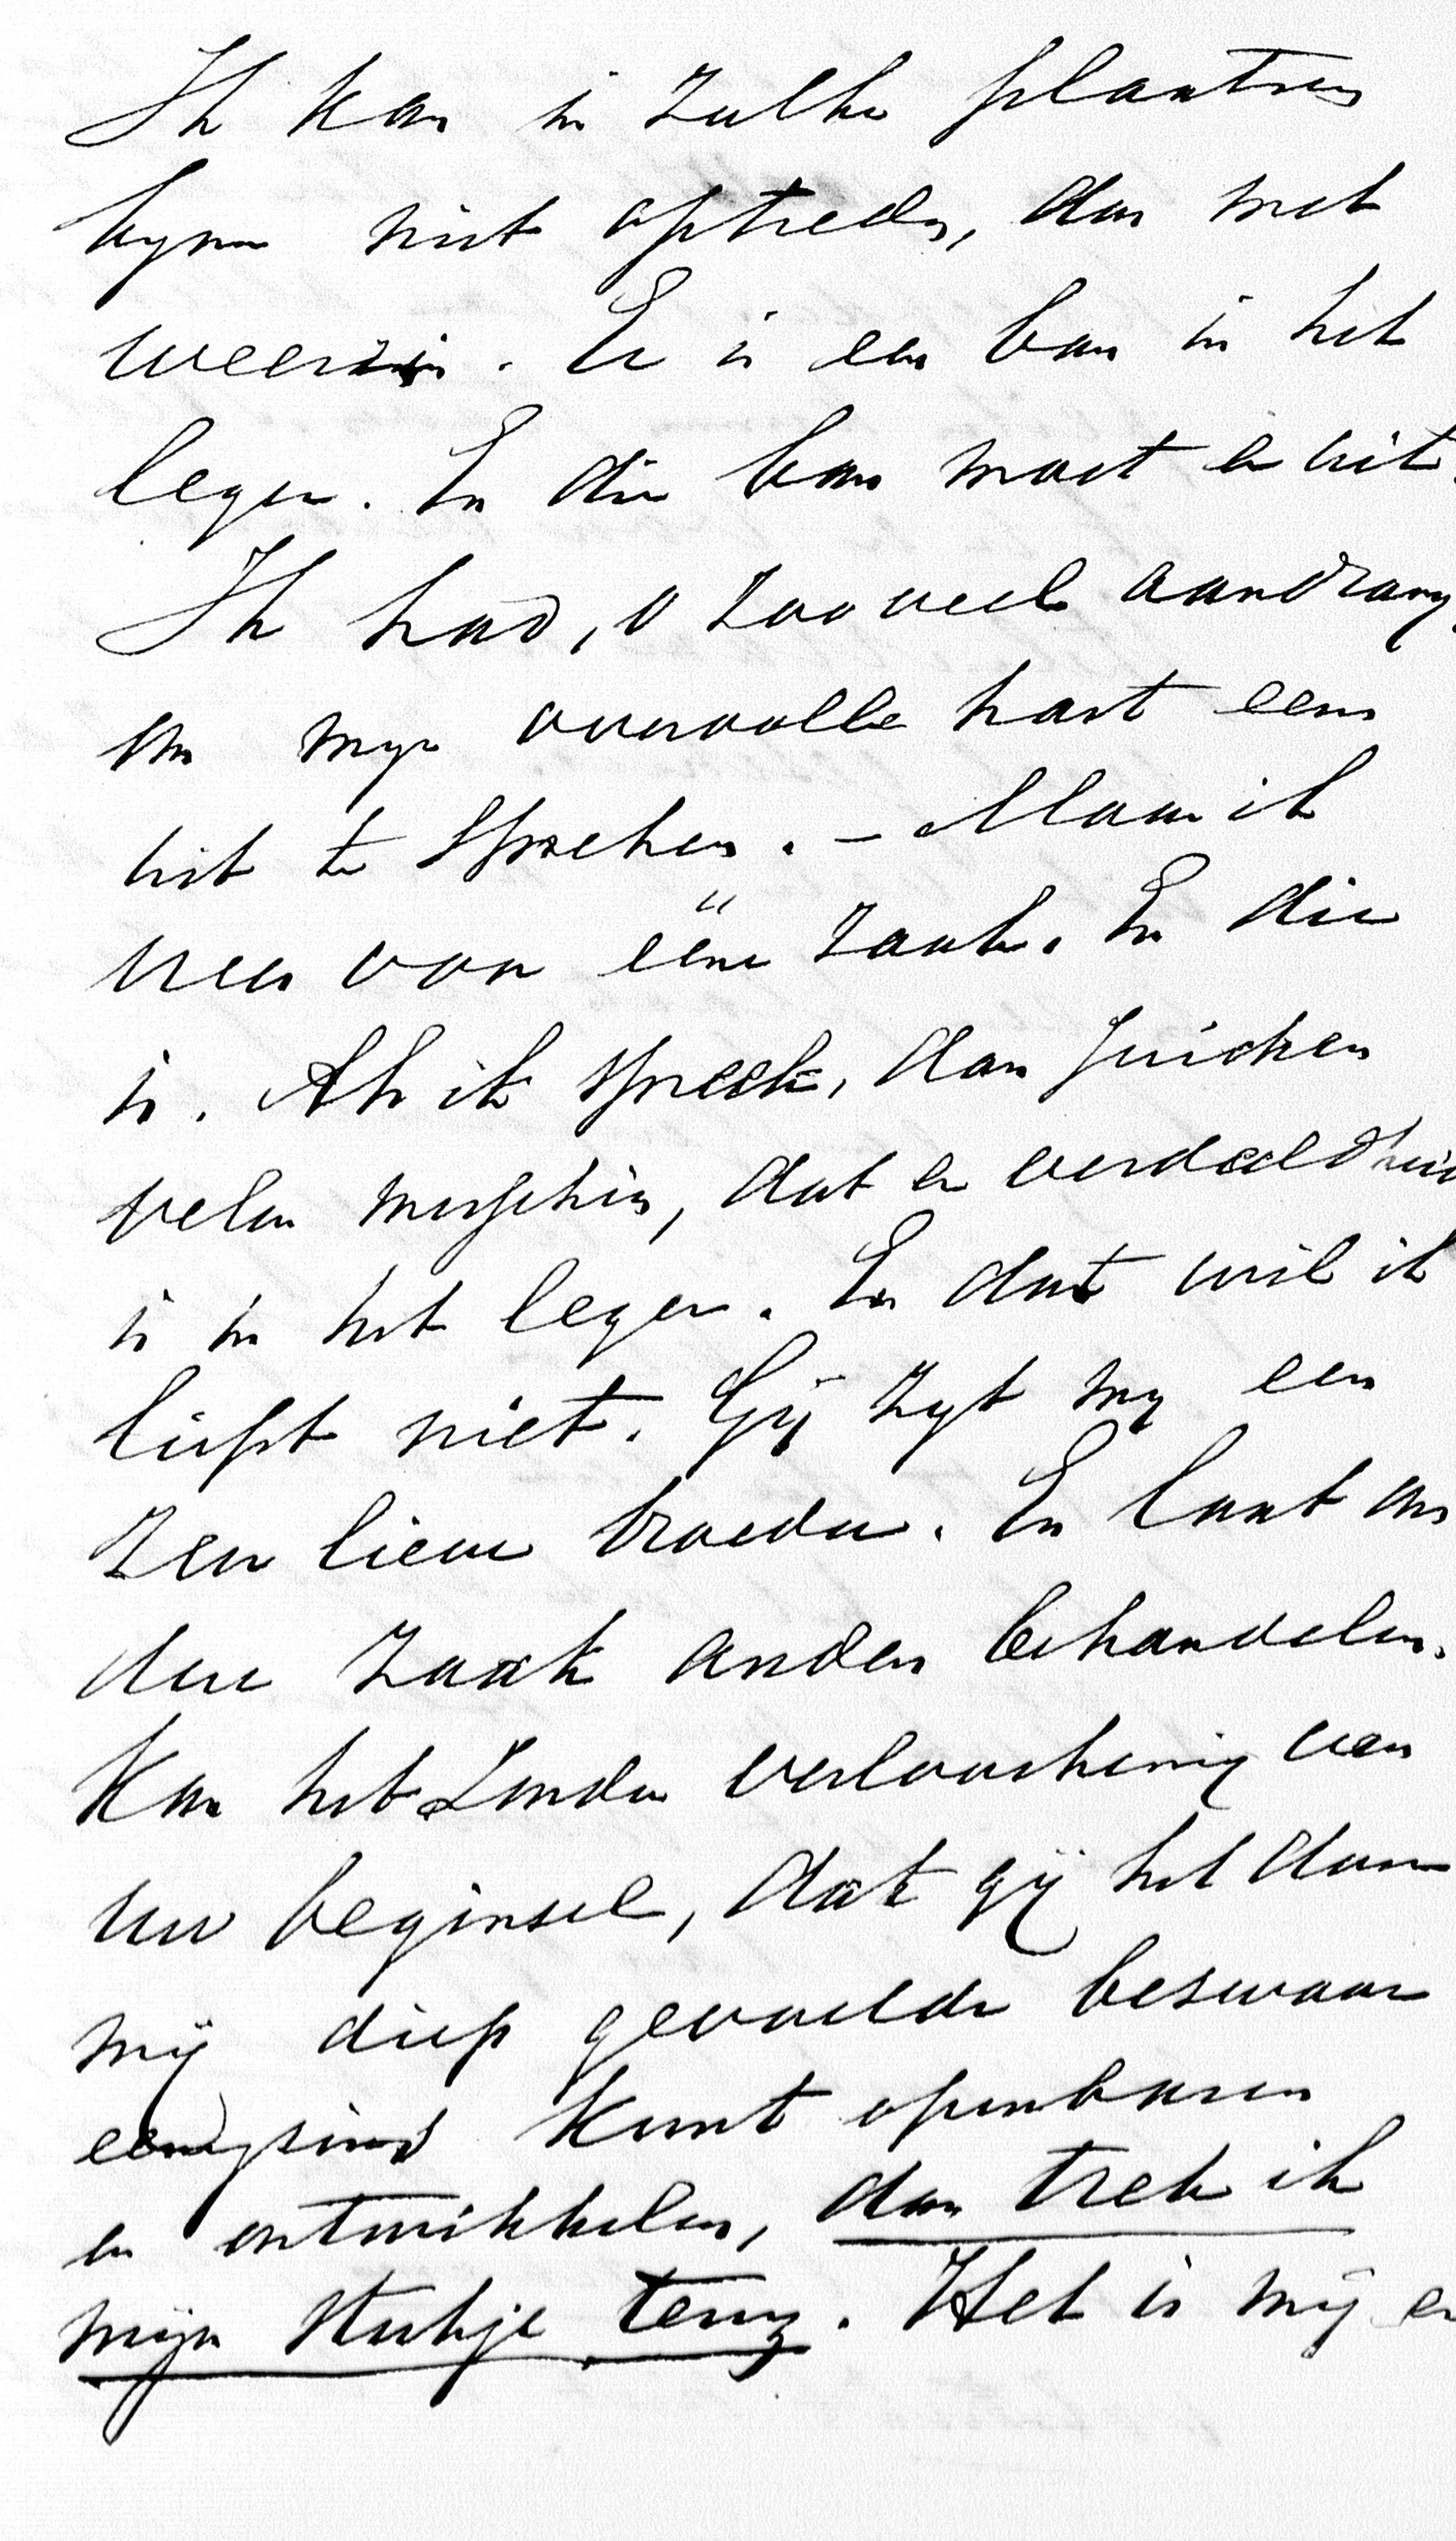 Ik kan in zulke plaatsen
byna niet optreden, dan met
weerzin. Er is een ban in het
leger. En die ban moet er uit.
Ik had, o zooveel aandrang,
om myn overvolle hart eens
uit te spreken. – Maar ik
vrees voor eene zaak. En die
is. Als ik spreek, dan juichen
velen misschien, dat er verdeeldheid
is in het leger. En dat wil ik
liefst niet. Gij zyt my een
zeer lieve broeder. En laat ons
deze zaak anders behandelen.
Kan het zonder verloochening van
uw beginsel, dat gij het door
mij diep gevoelde beswaar
eenigsins kunt openbaren
en ontwikkelen, dan trek ik
mijn stukje terug. Het is mij er